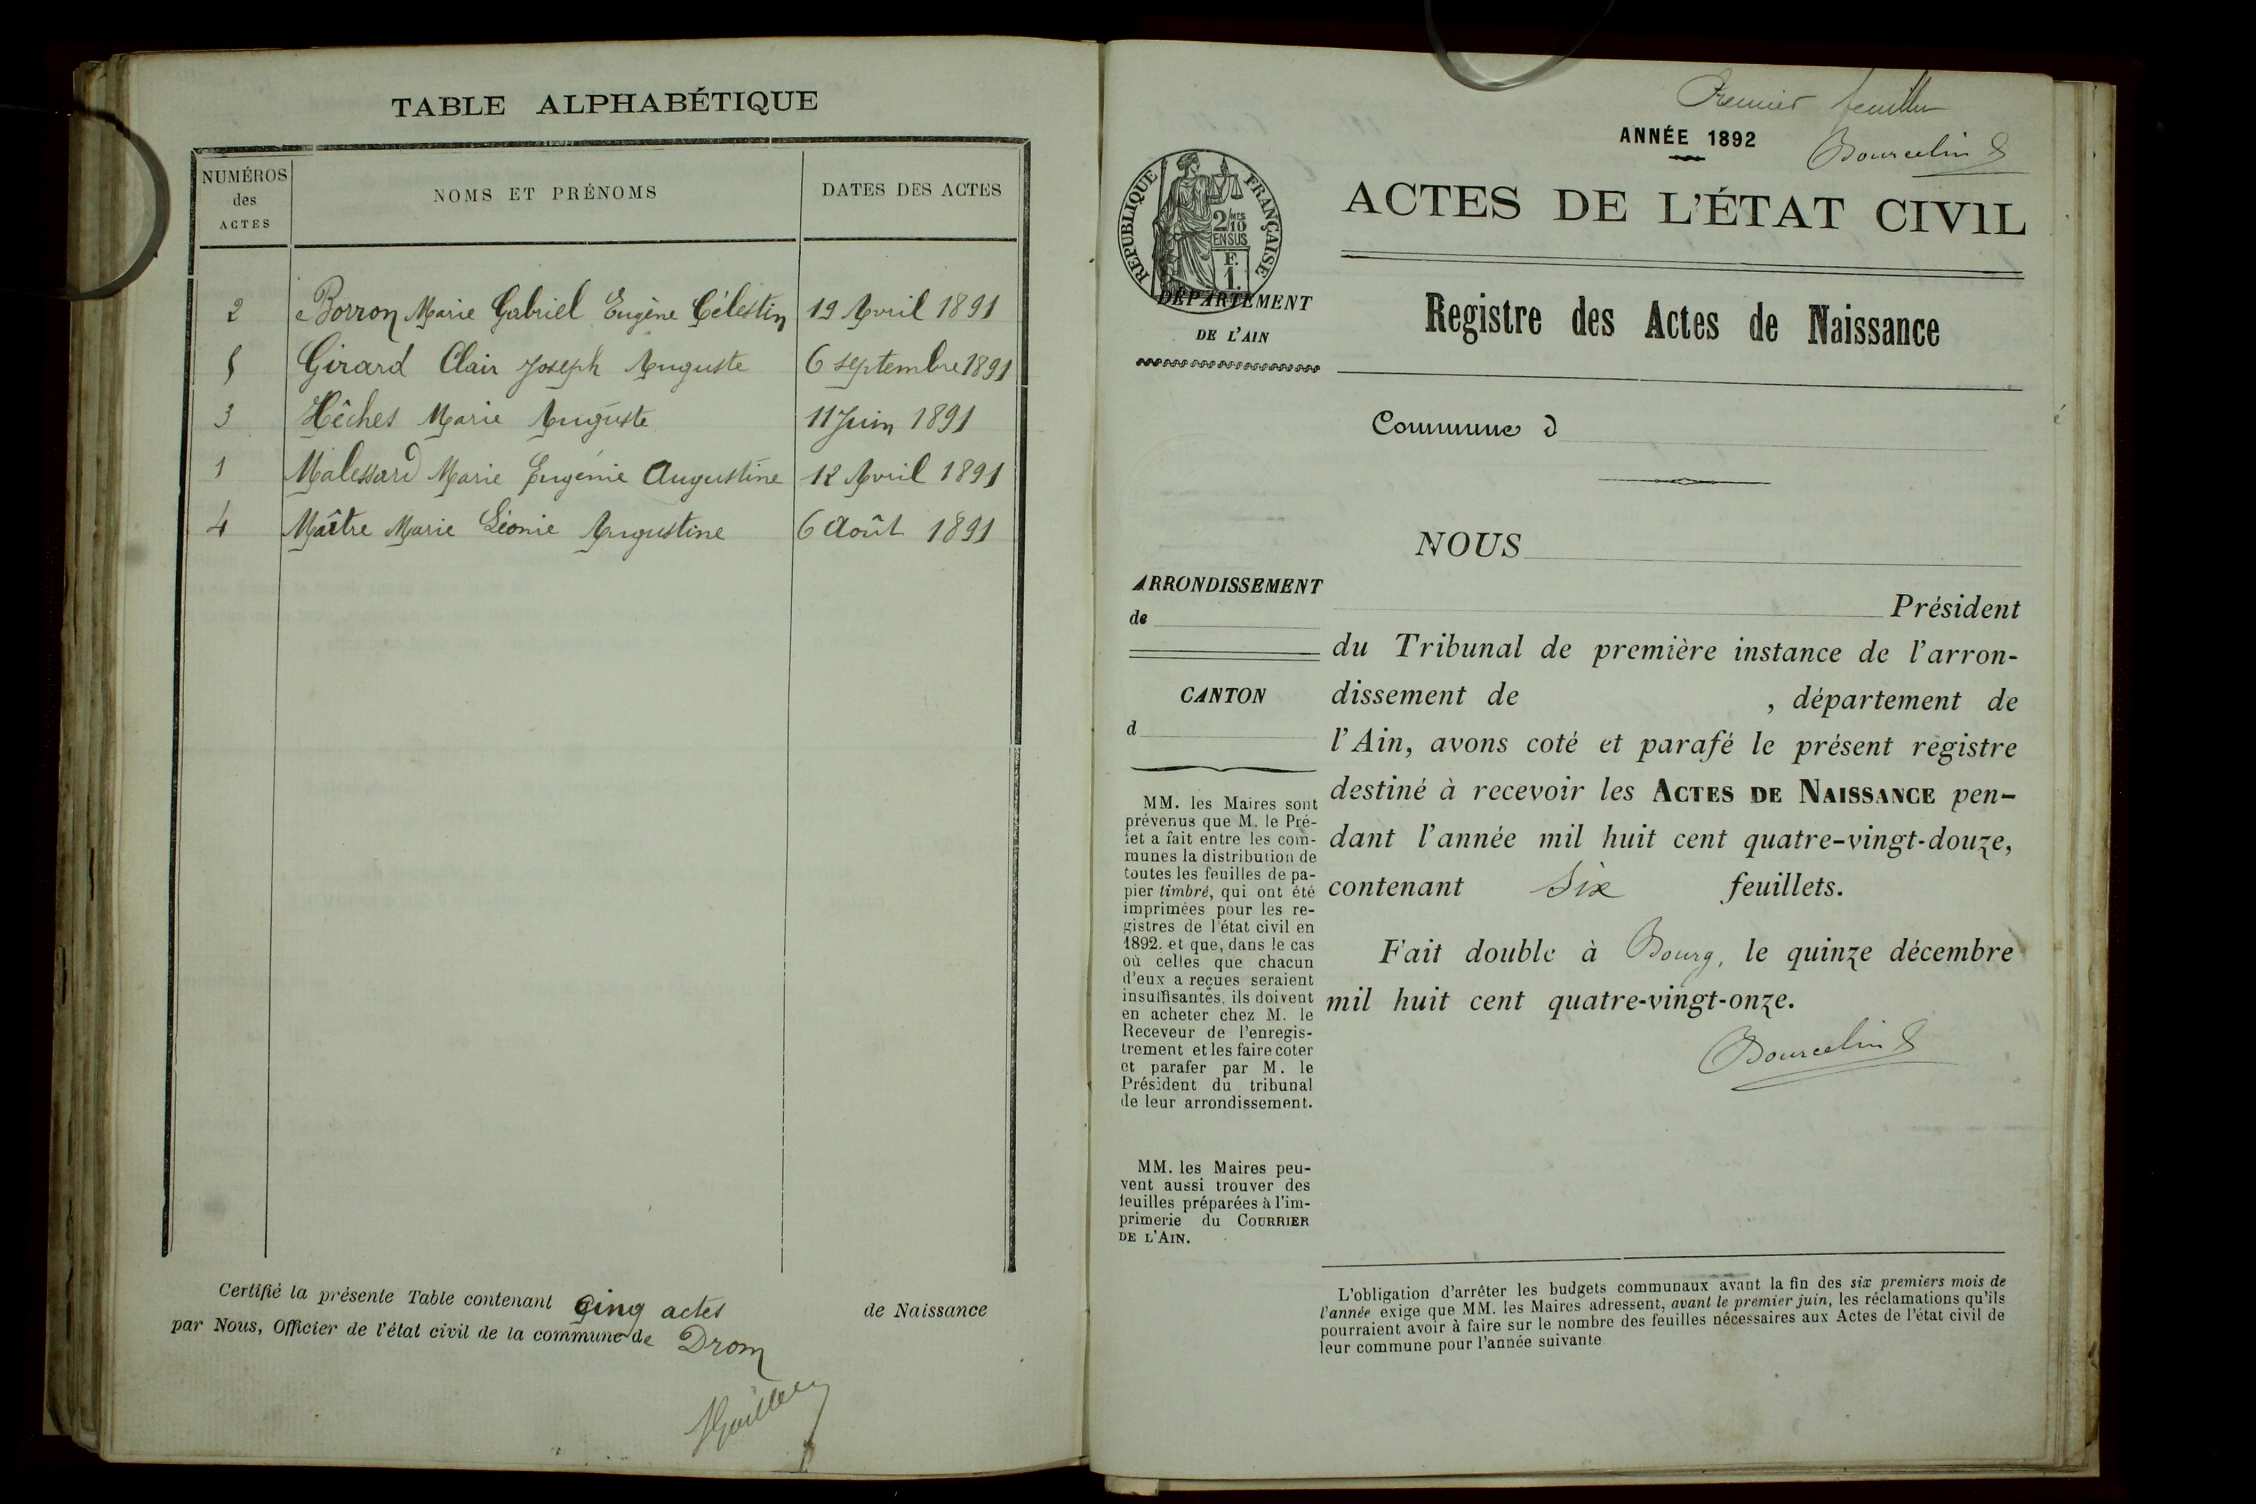 TABLE ALPHABÉTIQUE
NUMÉROS des ACTES
NOMS ET PRÉNOMS
DATES DES ACTES
2 Borron Marie Gabriel Eugène Célestin 19 Avril 1891
5 Girard Clair Joseph Auguste 6 septembre 1891
3 Hêches Marie Auguste 11 Juin 1891
1 Malessard Marie Eugénie Augustine 12 Avril 1891
4 Maître Marie Léonie Augustine 6 Août 1891
Certifié la présente Table contenant cinq actes de Naissance
par Nous, Officier de l'état civil de la commune de Drom
Premier feuillet
ANNÉE 1892
Bourcelin
ACTES DE L'ÉTAT CIVIL
RÉPUBLIQUE FRANÇAISE
2/10 MES
EN SUS
F.
1.
DÉPARTEMENT
DE L'AIN
Registre des Actes de Naissance
Commune d
NOUS
ARRONDISSEMENT
de
CANTON
d
MM. les Maires sont
prévenus que M. le Pré-
fet a fait entre les com-
munes la distribution de
toutes les feuilles de pa-
pier timbré, qui ont été
imprimées pour les re-
gistres de l'état civil en
1892. et que, dans le cas
où celles que chacun
d'eux a reçues seraient
insuffisantes, ils doivent
en acheter chez M. le
Receveur de l'enregis-
trement et les faire coter
et parafer par M. le
Président du tribunal
de leur arrondissement.
MM. les Maires peu-
vent aussi trouver des
feuilles préparées à l'im-
primerie du COURRIER
DE L'AIN.
Président
du Tribunal de première instance de l'arron-
dissement de , département de
l'Ain, avons coté et parafé le présent registre
destiné à recevoir les ACTES DE NAISSANCE pen-
dant l'année mil huit cent quatre-vingt-douze,
contenant six feuillets.
Fait double à Bourg, le quinze décembre
mil huit cent quatre-vingt-onze.
Bourcelin
L'obligation d'arrêter les budgets communaux avant la fin des six premiers mois de
l'année exige que MM. les Maires adressent, avant le premier juin, les réclamations qu'ils
pourraient avoir à faire sur le nombre des feuilles nécessaires aux Actes de l'état civil de
leur commune pour l'année suivante